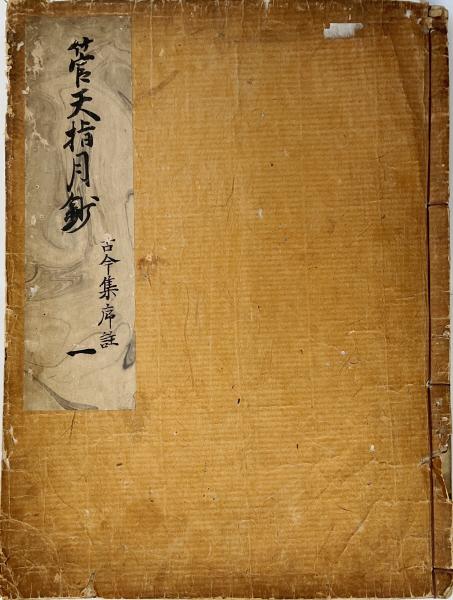 管天指月鈔
古今集序註
一